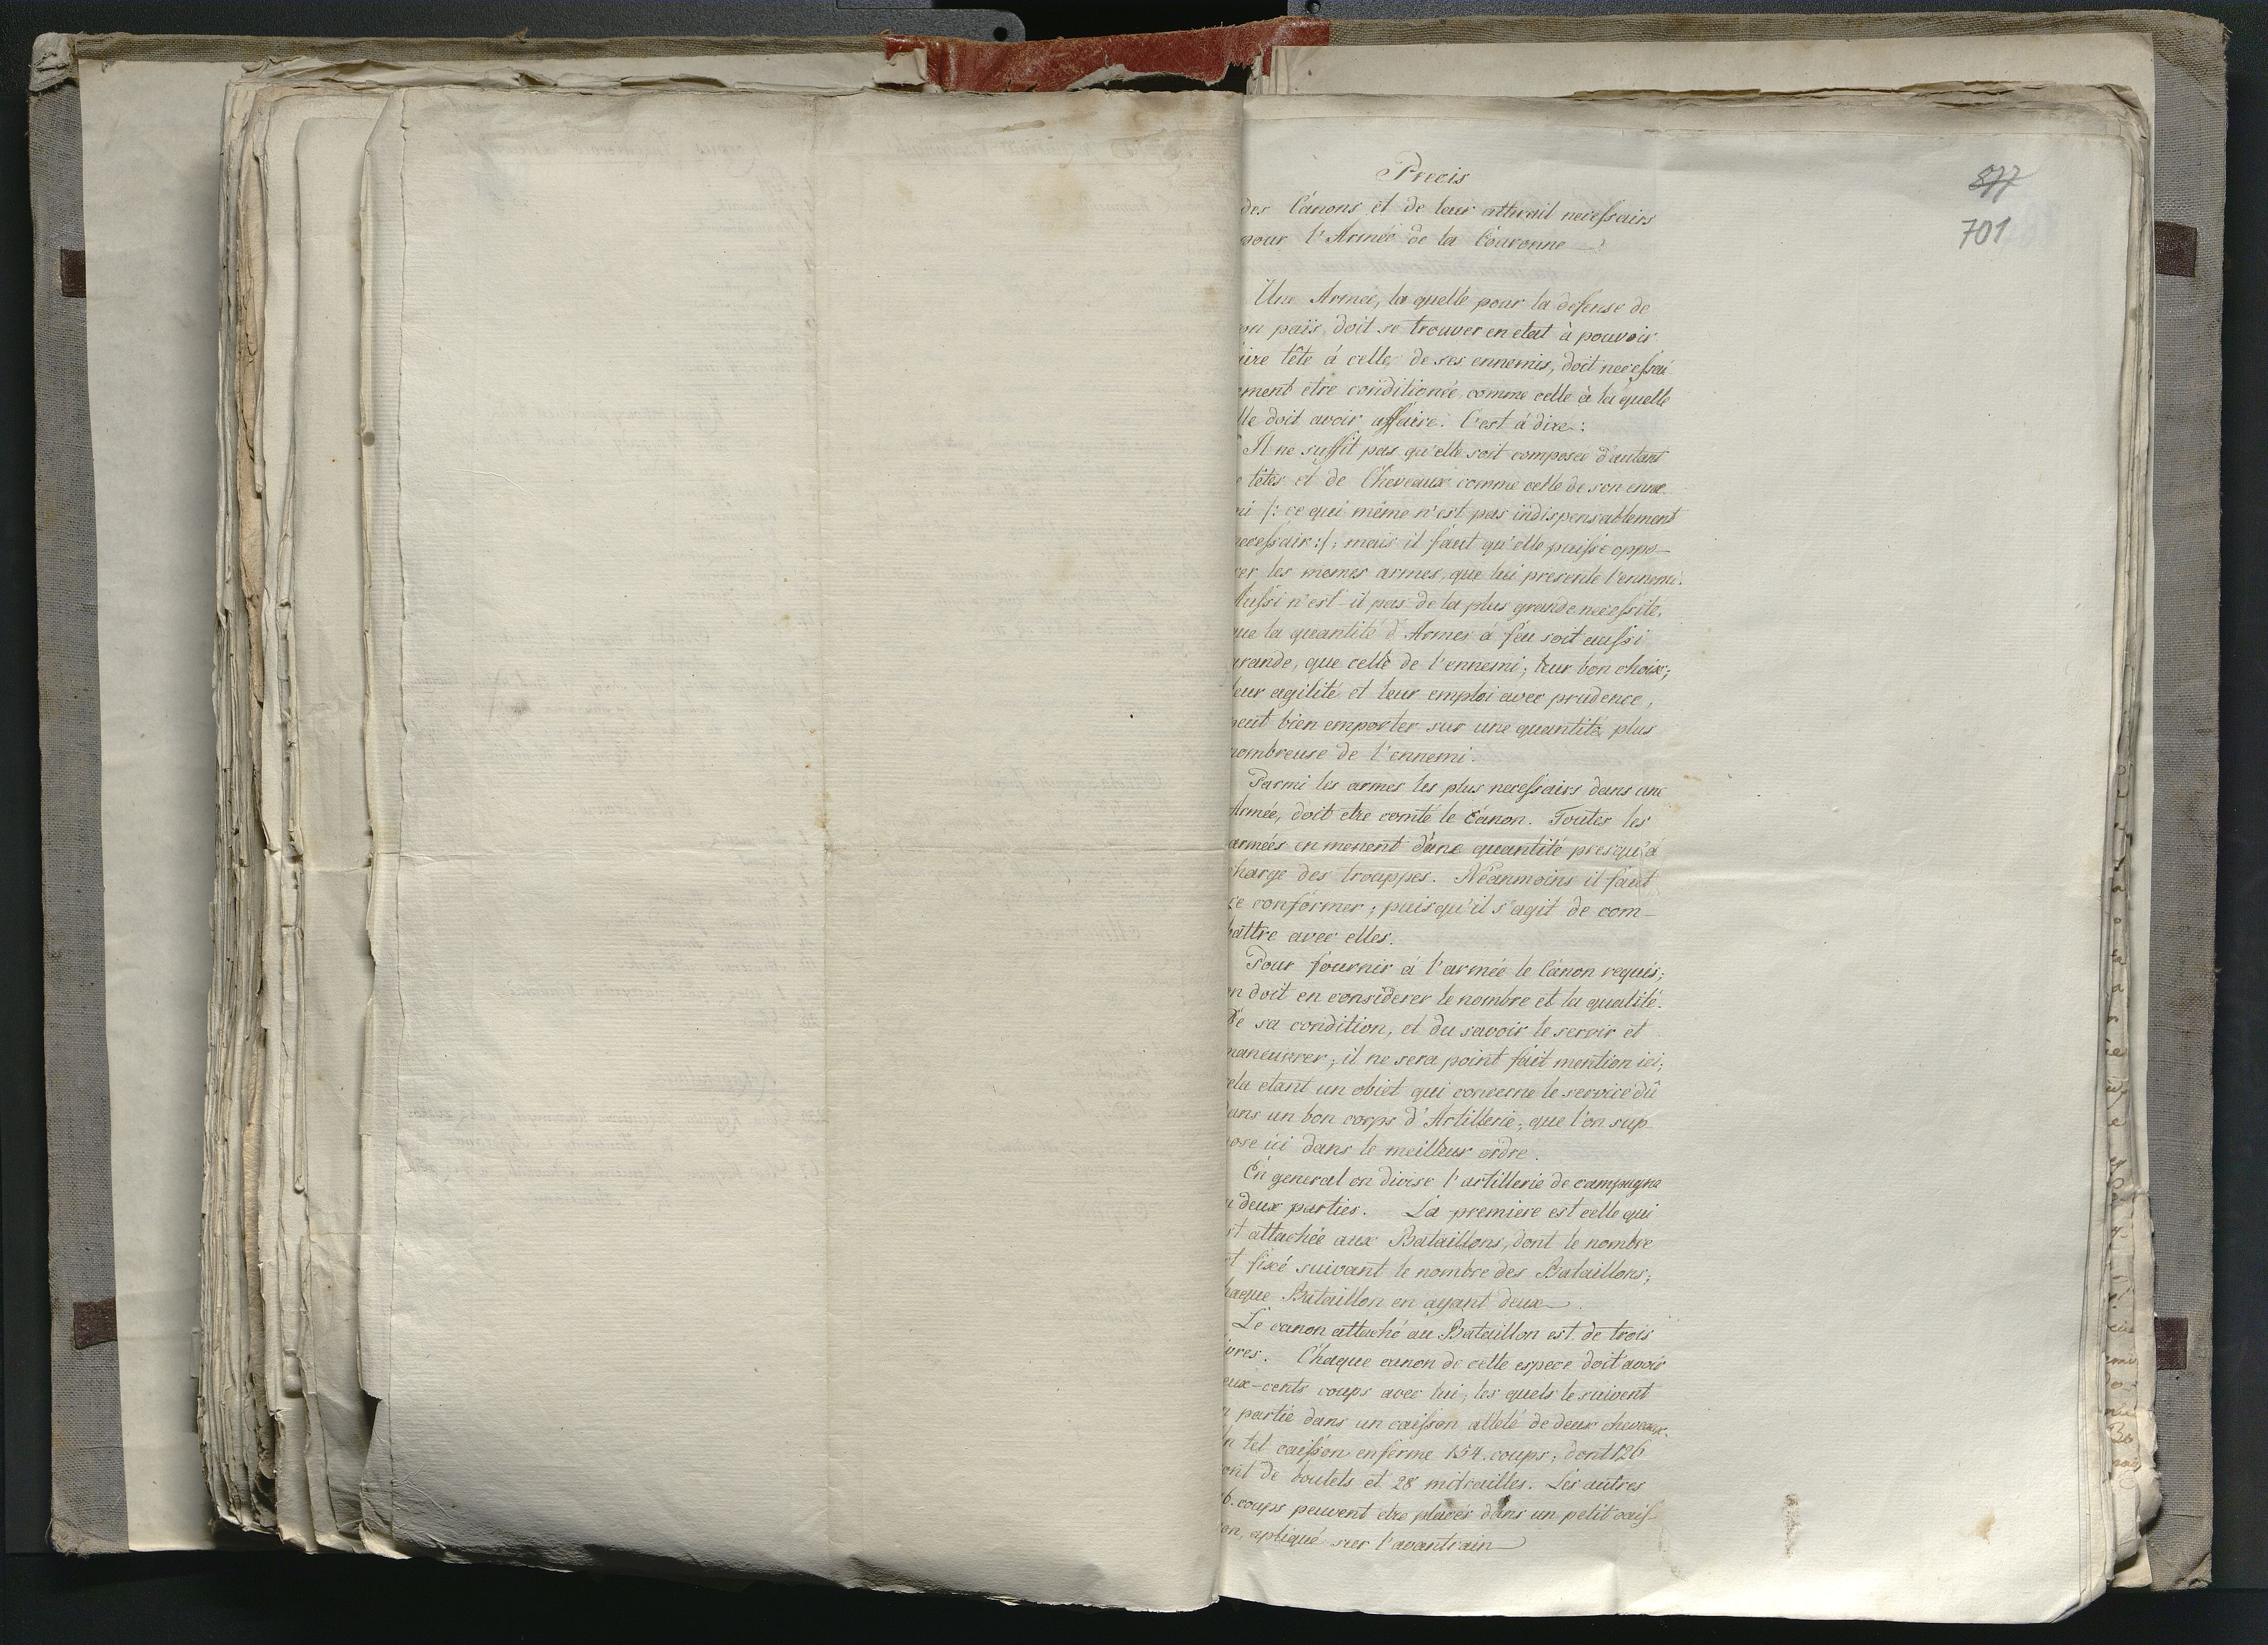 Precis
877
des Cánons et de leur attirail necessairs
701
pour l'Armée de la Couronne
Une Armée, la quelle pour la defense de
païs, doit se trouver en etat à pouvoir
tête á celle de ses ennemis, doit necessai
etre conditionée, comme celle à la quelle
doit avoir affaire. C'est á dire:
Il ne suffit pas qu'elle soit composeé d'autant
têtes et de Cheveaux comme celle de son enne
/: ce qui même n'est pas indispensablement
necessair :/; mais il faut qu'elle puisse oppo-
ser les memes armes, que lui presente l'ennemi.
Aussi n'est-il pas de la plus grande necessité,
que la quantité d'Armes á feu soit aussi
grande, que celle de l'ennemi; leur bon choix;
leur agilité et leur emploi avec prudence,
peut bien emporter sur une quantité plus
nombreuse de l'ennemi.
Parmi les armes les plus necessairs dans une
Armée, doit etre comté le Cánon. Toutes les
armées en menent d'une quantité presqu'á
charge des trouppes. Néanmoins il faut
se conformer; puisqu'il s'agit de com-
battre avec elles.
Pour fournir á l'armée le Cánon requis;
on doit en considerer le nombre et la qualité.
De sa condition, et du savoir le servir et
maneuvrer; il ne sera point fait mention ici;
cela etant un obiet qui concerne le service dû
dans un bon corps d'Artillerie; que l'on sup-
pose ici dans le meilleur ordre.
En general on divise l'artillerie de campagne
deux parties. La premiere est celle qui
attachée aux Bataillons, dont le nombre
fixé suivant le nombre des Bataillons;
chaque Bataillon en ayant deux.
Le canon attaché au Bataillon est de trois
livres. Chaque canon de cette espece doit avoir
deux-cents coups avec lui; les quels le suivent
partie dans un caisson attelé de deux cheveaux.
tel caisson enferme 154 coups; dont 126
sont de boulets et 28 mitrailles. Les autres
coups peuvent etre placés dans un petit cais-
son, apliqué sur l'avantrain